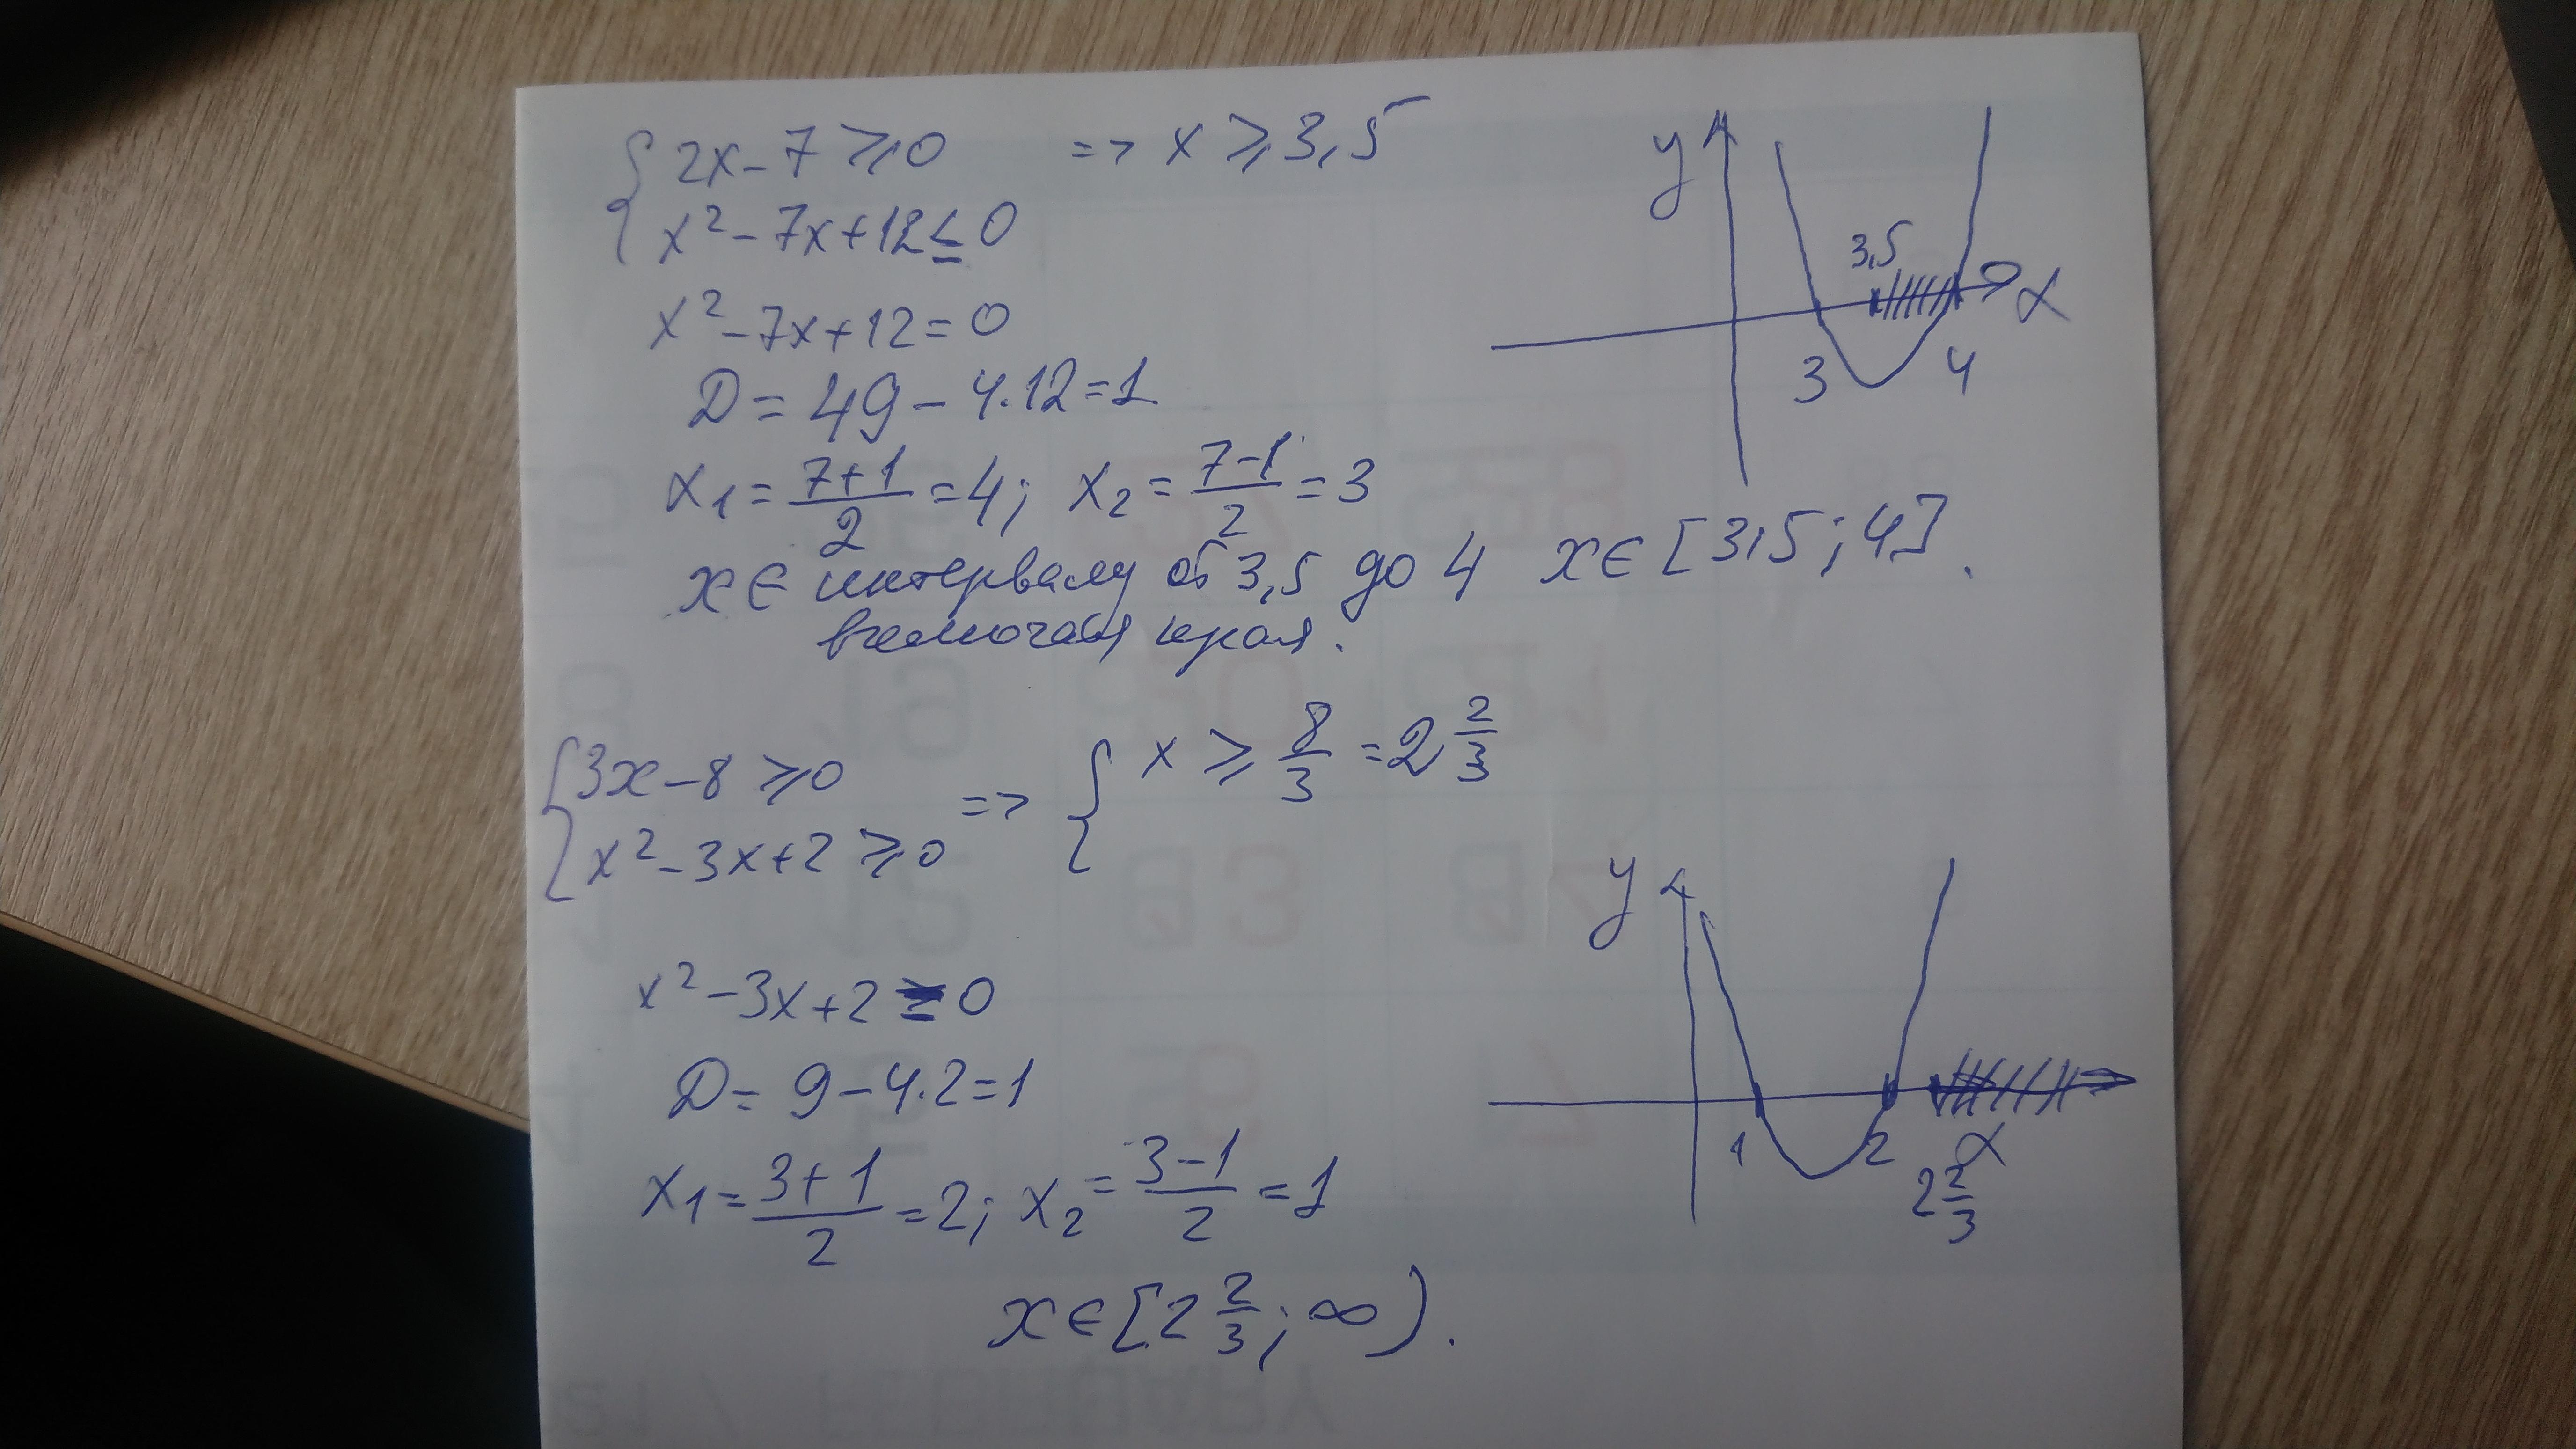 { 2x - 7 ⩾ 0 => x ⩾ 3,5
x² - 7x + 12 ≤ 0
x² - 7x + 12 = 0
D = 49 - 4·12 = 1
x₁ = (7+1)/2 = 4; x₂ = (7-1)/2 = 3
x ∈ интервалу от 3,5 до 4 x ∈ [3,5; 4].
включая края.
y
3,5
x
3 4
{ 3x - 8 ⩾ 0 => { x ⩾ 8/3 = 2 2/3
x² - 3x + 2 ⩾ 0
x² - 3x + 2 = 0
D = 9 - 4·2 = 1
x₁ = (3+1)/2 = 2; x₂ = (3-1)/2 = 1
x ∈ [2 2/3; ∞).
y
1 2 x
2 2/3